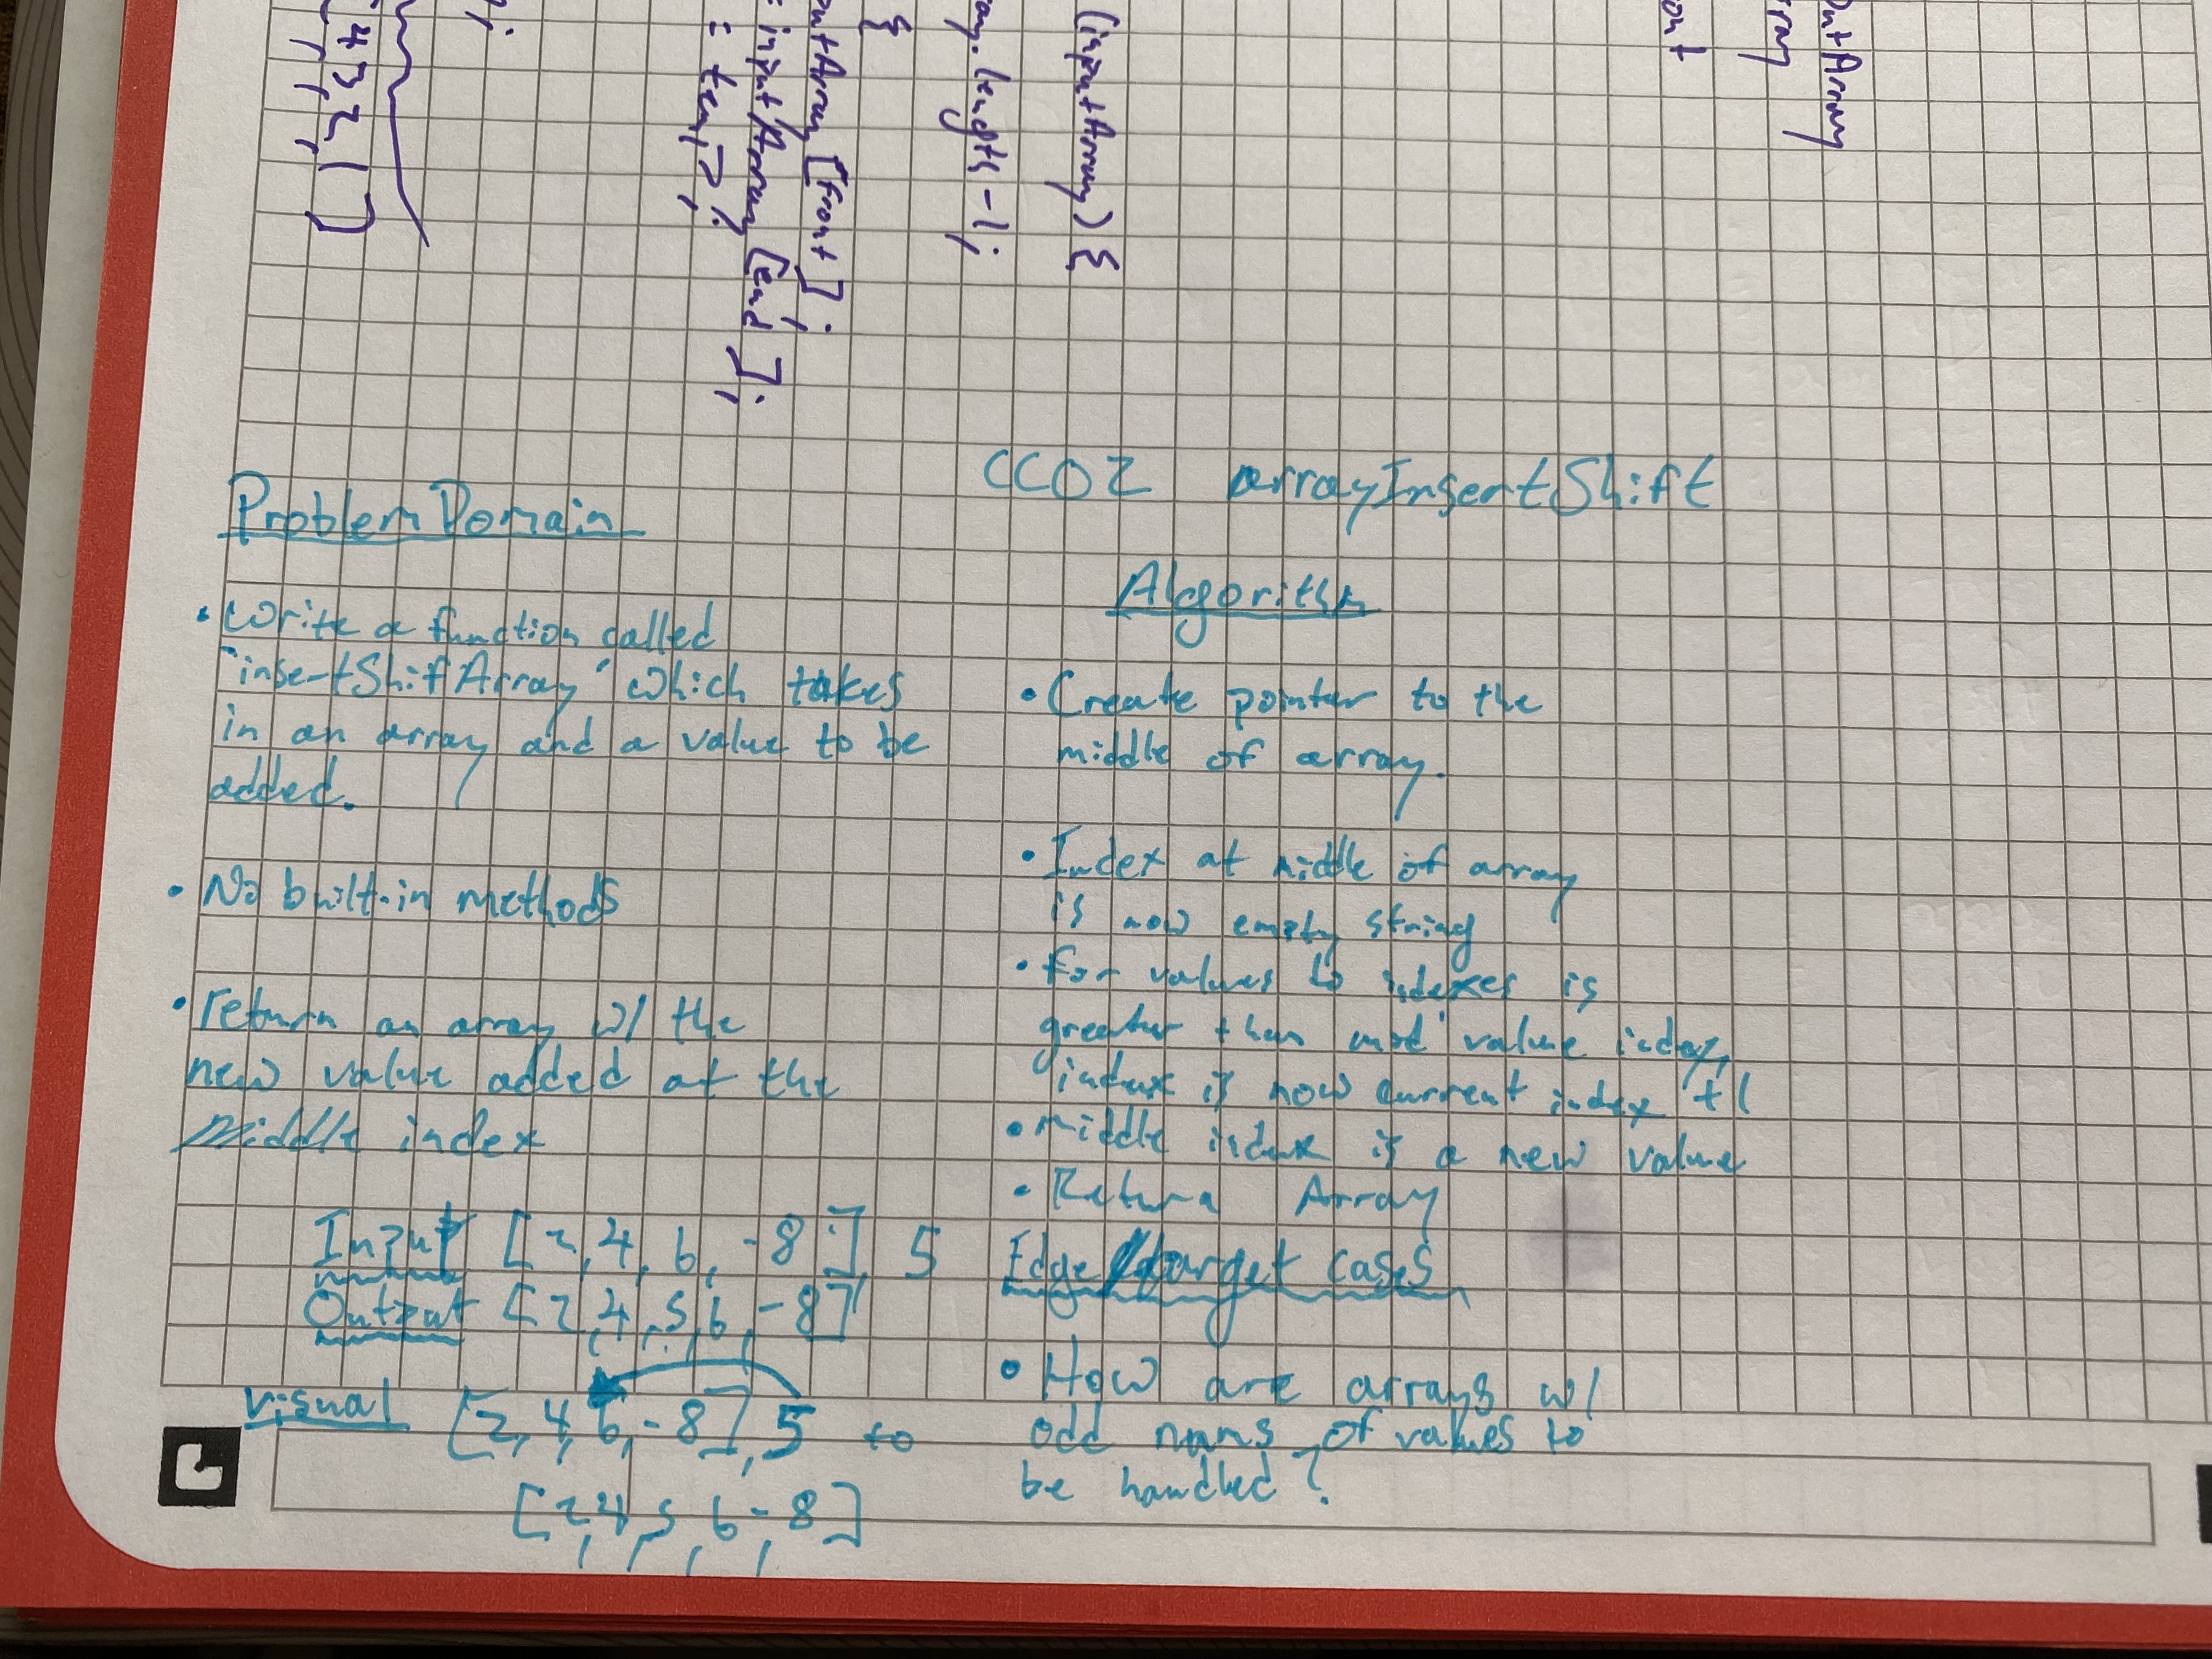 putArray
rray
ont
(inputArray) {
ay.length -1;
{
putArray [front];
= inputArray [end];
= temp;
;
4 3 2 1 ]
, , ,
CC02 arrayInsertShift
Problem Domain
• Write a function called
"insertShiftArray" which takes
in an array and a value to be
added.
• No built-in methods
• return an array w/ the
new value added at the
middle index
Input [2,4,6,-8], 5
Output [2,4,5,6,-8]
visual [2,4,6,-8],5 to
[2,4,5,6,-8]
Algorithm
• Create pointer to the
middle of array.
• Index at middle of array
is now empty string
• for values to indexes is
greater than mid value index,
index is now current index +1
• middle index is a new value
• Return Array
Edge/target cases
• How are arrays w/
odd nums of values to
be handled?